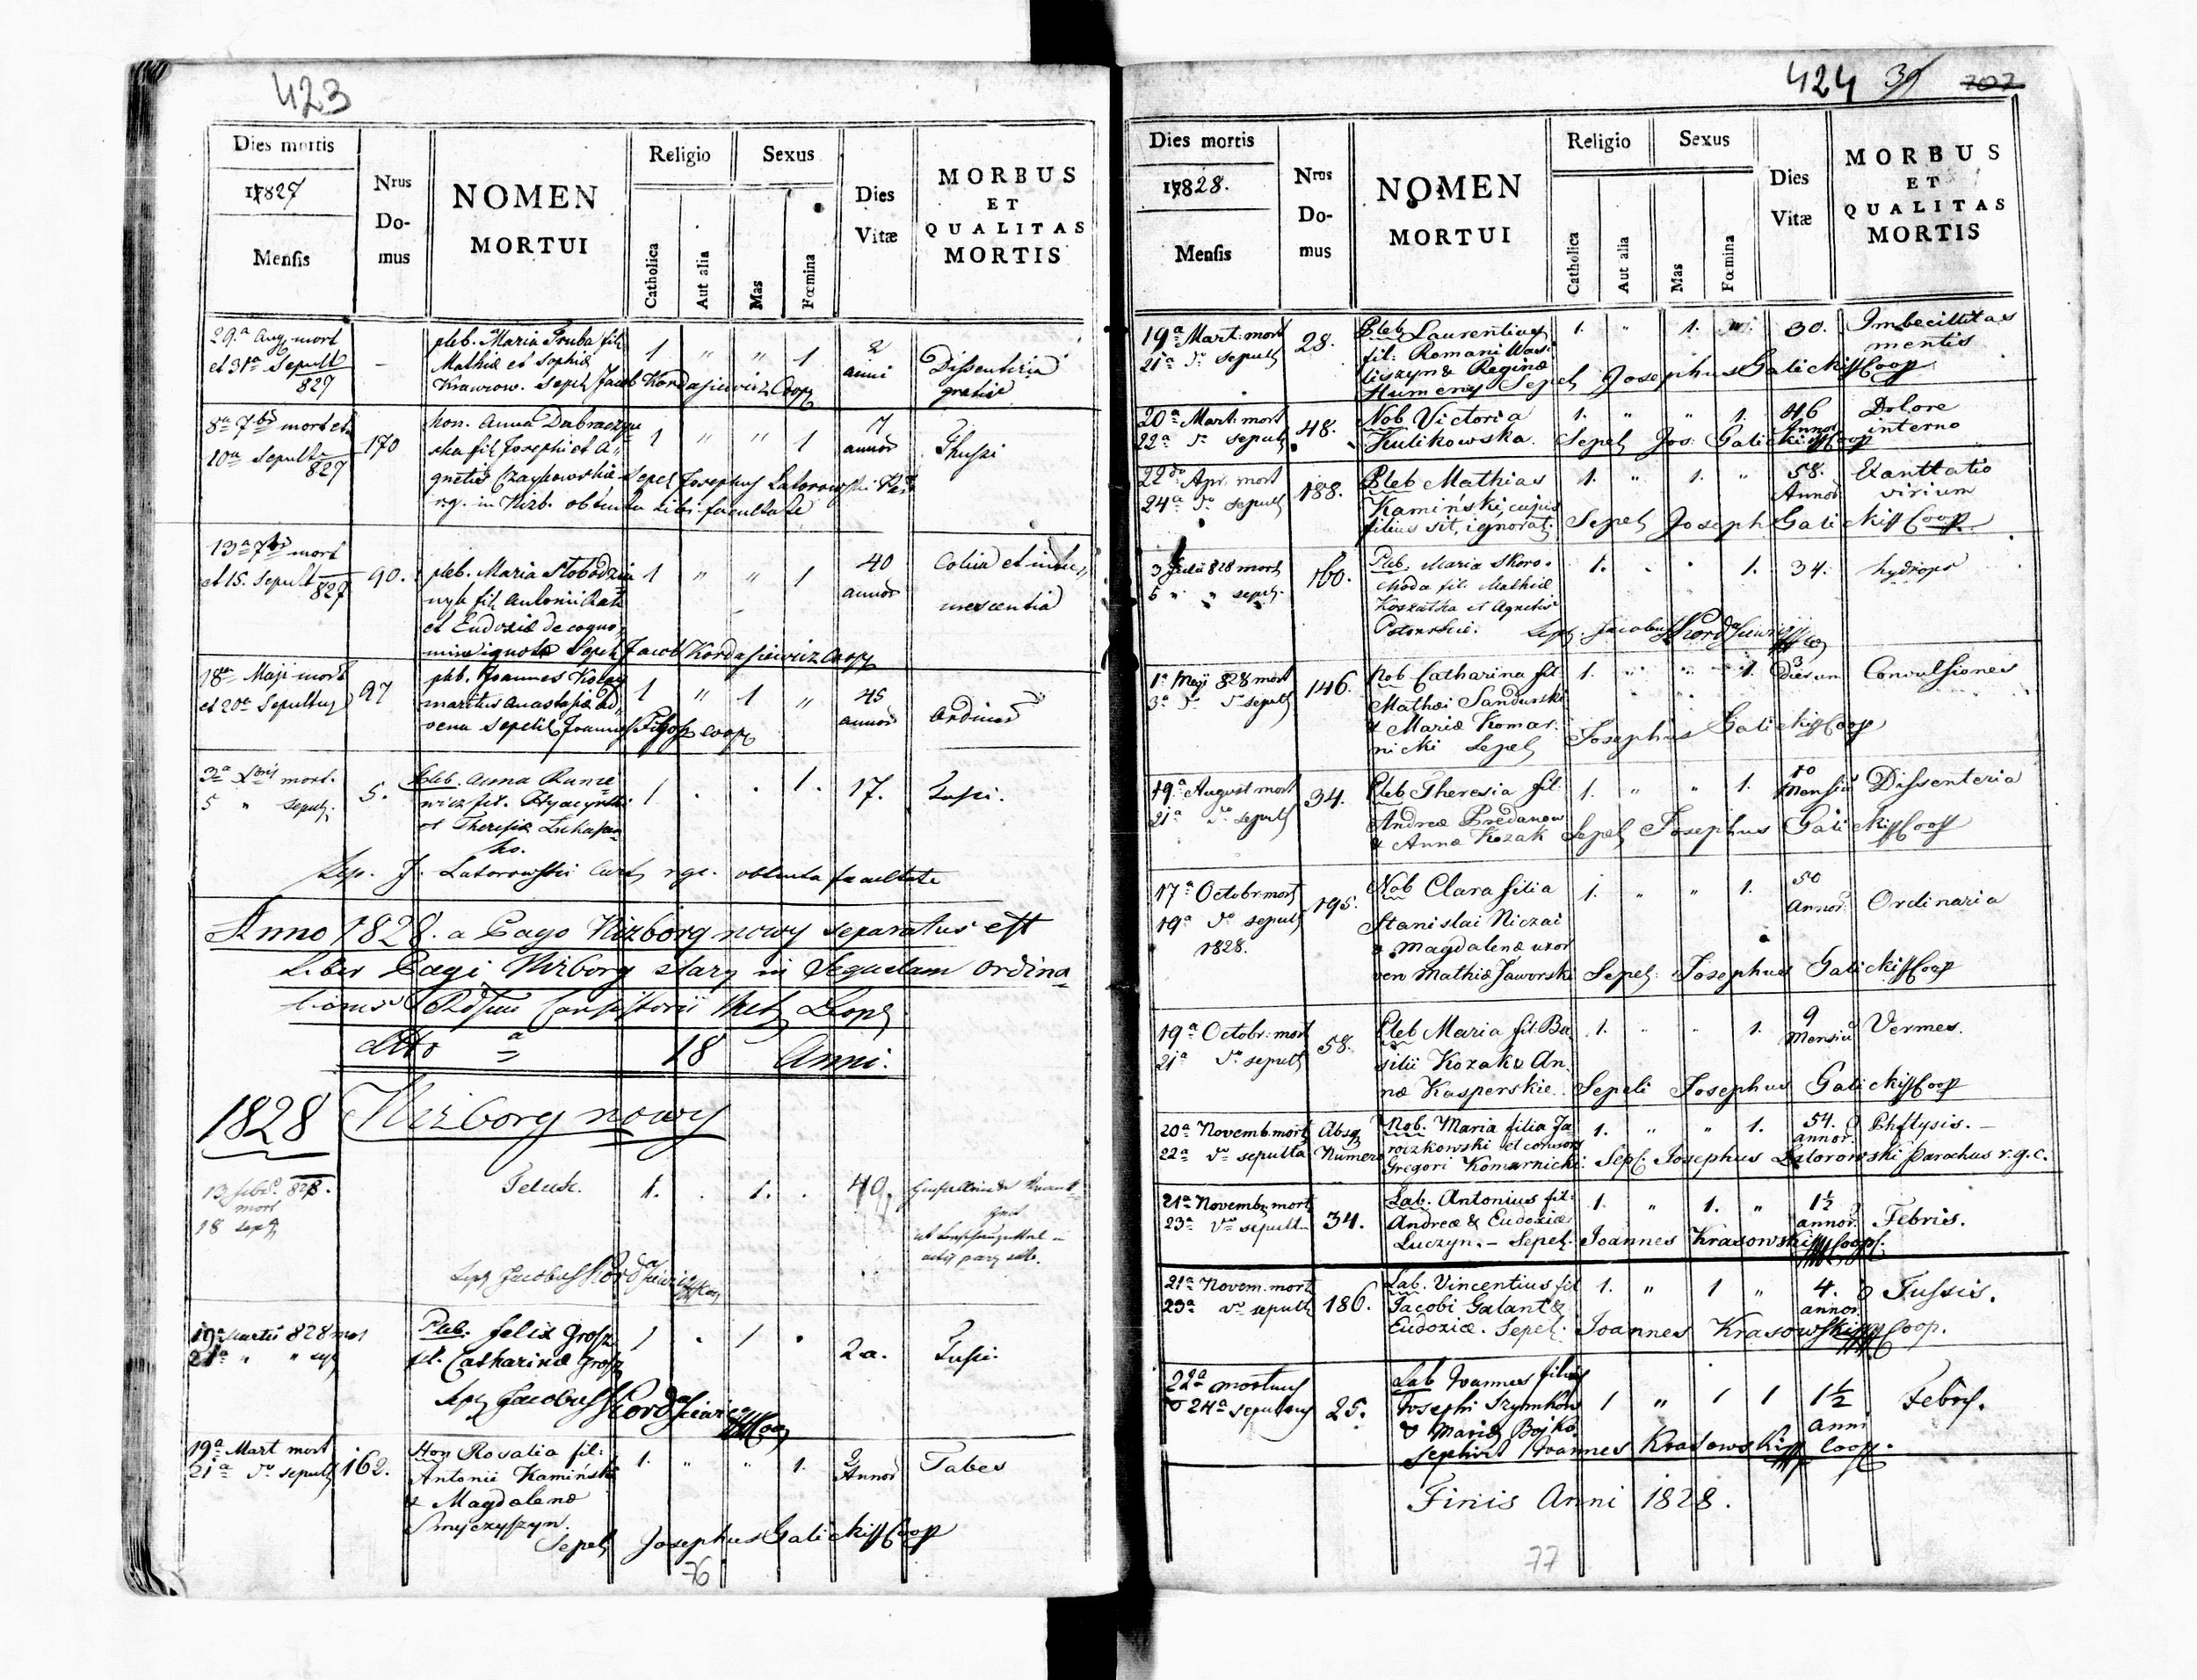 423
Dies mortis
1827
Mensis
Nrus
Do-
mus
NOMEN
MORTUI
Religio
Catholica
Aut alia
Sexus
Mas
Fœmina
Dies
Vitæ
MORBUS
ET
QUALITAS
MORTIS
29.a Aug. mort
et 31a Sepult
827
–
pleb. Maria Gruba fil
Mathiæ et Sophiæ
Krawcow. Sepel Jacob Kordasiewicz Coop
1 " " 1
2
anni
Dissentiria
8a 7bris mort et
10a Sepulta
827
170
hon. Anna Dabraczyn
ska fil Josephi et A,,
gnetis Czaykowskie Sepel Josephus Latorowski
rg. in Nizb. obtenta sibi facultate
1 " " 1
7
annor
Thussi
13a 7bri mort
et 15. Sepult
827
90.
pleb. Maria Slobodzia
nyk fil Antonii
et Eudoxiæ de cogno,,
mine ignota Sepel Jacob Kordasiewicz Coop
1 " " 1
40
annor
Colica et
18a Maji mort
et 20a Sepultus
97
pleb. Joannes
maritus Anastasiæ ad,,
vena Sepelit Joannes Coop
1 " 1 "
45
annor
Ordinar
3a Xbris mort.
5 " sepul.
5.
pleb. Anna
fil. Hyacynthi
et Theresiæ
1 . . 1.
17.
Tussi.
Sep. J. Latorowski Cur rgc. obtenta facultate
Anno 1828. a Pago Nizborg nowy separatus est
Liber Pagi Nizborg stary in Sequelam ordina
tionis Consistorii Leop
dtto 18 Anni.
1828 Nizborg nowy
13 Febr. 828.
mort
18 sep
1. . 1. .
49.
Sep Jacobus Kordasiewicz Coop
19 Martii 828 mort
21a " " sep
Pleb. Felix Grosz
fil. Catharinæ Grosz
Sep Jacobus Kordasiewicz Coop
1 . 1 .
2 a.
Tussi.
19a Mart mort
21a do sepult
162.
Hon Rosalia fil:
Antonii Kamiński
& Magdalenæ
Smyczyszyn.
Sepel Josephus Galicki Coop
1. " " 1.
2
Annor
Tabes
76
424 39 707
Dies mortis
1828.
Mensis
Nrus
Do-
mus
NOMEN
MORTUI
Religio
Catholica
Aut alia
Sexus
Mas
Fœmina
Dies
Vitæ
MORBUS
ET
QUALITAS
MORTIS
19a Mart: mort
21a do sepult
28.
Pleb Laurentius
fil: Romani Wasi
liszyn & Reginæ
Humeny Sepel Josephus Galicki Coop
1. " 1.
30.
Imbecillitas
mentis
20a Mart: mort
22a do sepult
48.
Nob Victoria
Kulikowska. Sepel Jos: Galicki Coop
1. " " 1.
46
Annor
Dolore
interno
22da Apr. mort
24a do sepult
188.
Pleb Mathias
Kamiński, cujus
filius sit, ignorat: Sepel Joseph Galicki Coop
1. " 1. "
58.
Annor
Exantlatio
virium
3 Julii 828 mort
5 " " sepul.
160.
Pleb. Maria Skoro-
choda fil: Mathiæ
Koszalka et Agnetis
Sep. Jacobus Kordasiewicz Coop
1. . . 1.
34.
hydrops
1a Maij 828 mort
3a do do sepult
146.
Nob Catharina fil
Mathæi Sandurski
& Mariæ Komar-
nicki Sepel Josephus Galicki Coop
1. " " 1.
3
Dierum
Convulsiones
19a August mort
21a do sepult
34.
Pleb Theresia fil:
Andreæ Bredanow
& Annæ Kozak Sepel Josephus Galicki Coop
1. " " 1.
10
Mensiu
Dissenteria
17a Octobr mort
19a do sepult
1828.
195.
Nob Clara filia
Stanislai Niczai
& Magdalenæ uxor
vero Mathiæ Jaworski Sepel: Josephus Galicki Coop
1. " " 1.
50
Annor
Ordinaria
19a Octobr: mort
21a do sepult
58.
Pleb Maria fil: Ba
silii Kozak & An
næ Kasperskie. Sepeli Josephus Galicki Coop
1. " " 1.
9
Mensiu
Vermes.
20a Novemb. mort
22a do sepulta
Absq
Numero
Nob. Maria filia Ja
roszkowski et consors
Gregori Komarnicki. Sepl. Josephus Latorowski Parochus r.g.c.
1. " " 1.
54.
annor.
Phtysis. –
21a Novembr. mort
23a do sepult
34.
Lab. Antonius fil:
Andreæ & Eudoxiæ
Luczyn. – Sepel. Joannes Krasowski Coop.
1. " 1. "
1½
annor.
Febris.
21a Novem. mort
23a do sepult
186.
Lab. Vincentius fil
Jacobi Galant &
Eudoxiæ. Sepel. Joannes Krasowski Coop.
1. " 1 "
4.
annor
Tussis.
22a mortuus
24a sepultus
25.
Lab Joannes filius
Josephi Szymków
& Mariæ Bojko.
sepelivit Joannes Krasowski Coop.
1 " 1 1
1½
Anni
Febris.
Finis Anni 1828.
77